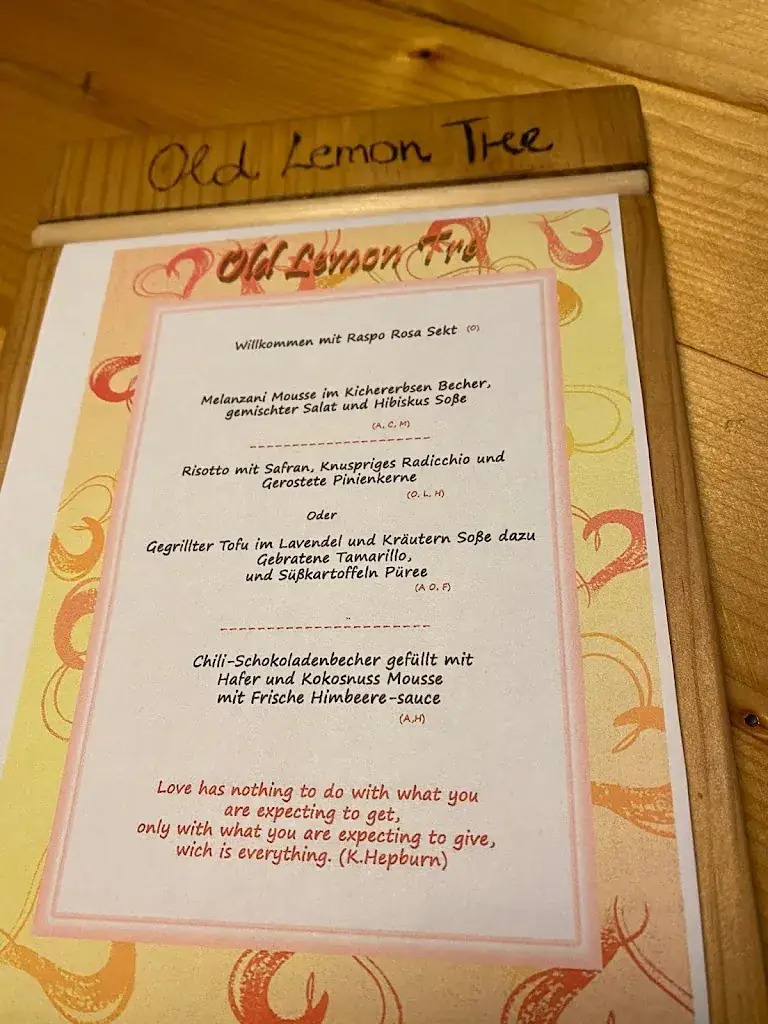 Old Lemon Tree
Old Lemon Tre
Willkommen mit Raspo Rosa Sekt (O)
Melanzani Mousse im Kichererbsen Becher,
gemischter Salat und Hibiskus Soße
(A, C, M)
Risotto mit Safran, Knuspriges Radicchio und
Gerostete Pinienkerne
(O, L, H)
Oder
Gegrillter Tofu im Lavendel und Kräutern Soße dazu
Gebratene Tamarillo,
und Süßkartoffeln Püree
(A O, F)
Chili-Schokoladenbecher gefüllt mit
Hafer und Kokosnuss Mousse
mit Frische Himbeere-sauce
(A,H)
Love has nothing to do with what you
are expecting to get,
only with what you are expecting to give,
wich is everything. (K.Hepburn)